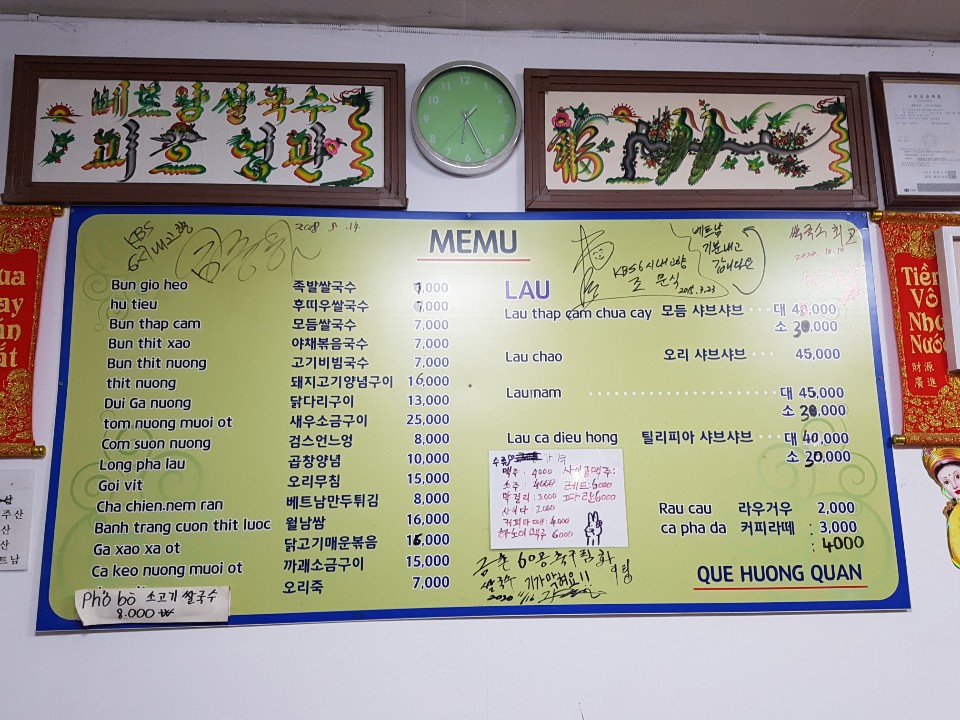 베트남쌀국수
고흥열관
KBS
6시내고향
2018 5. 14
MEMU
베트남
기분내고
갑니다요
KBS 6시내고향
조 문식
2018.3.23
쌀국수 최고
2020. 10. 10
Bun gio heo 족발쌀국수 7,000
hu tieu 후띠우쌀국수 7,000
Bun thap cam 모듬쌀국수 7,000
Bun thit xao 야채볶음국수 7,000
Bun thit nuong 고기비빔국수 7,000
thit nuong 돼지고기양념구이 16,000
Dui Ga nuong 닭다리구이 13,000
tom nuong muoi ot 새우소금구이 25,000
Com suon nuong 껌스언느엉 8,000
Long pha lau 곱창양념 10,000
Goi vit 오리무침 15,000
Cha chien.nem ran 베트남만두튀김 8,000
Banh trang cuon thit luoc 월남쌈 16,000
Ga xao xa ot 닭고기매운볶음 15,000
Ca keo nuong muoi ot 까괘소금구이 15,000
오리죽 7,000
Phở bò 소고기 쌀국수
8.000 ₩
LAU
Lau thap cam chua cay 모듬 샤브샤브 ··· 대 40,000
소 30,000
Lau chao 오리 샤브샤브 ··· 45,000
Lau nam ··· 대 45,000
소 30,000
Lau ca dieu hong 틸리피아 샤브샤브 ··· 대 40,000
소 30,000
맥주 : 4000
소주 : 4000
막걸리 : 3.000
사이다 : 2.000
커피라떼 : 4.000
하노이맥주 6000
사이공맥주:
레드:6000
파란:6000
Rau cau 라우거우 2,000
ca pha da 커피라떼 : 3,000
: 4000
쌀국수 기가막혀요!!
2020 11/16
QUE HUONG QUAN
Tiền
Vô
Như
Nước
財源
廣進